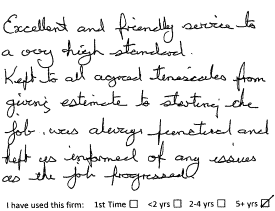 Excellent and friendly service to
a very high standard.
Kept to all agreed timescales from
giving estimate to starting the
job. was always punctual and
kept us informed of any issues
as the job progressed
I have used this firm: 1st Time ☐ <2 yrs ☐ 2-4 yrs ☐ 5+ yrs ☑